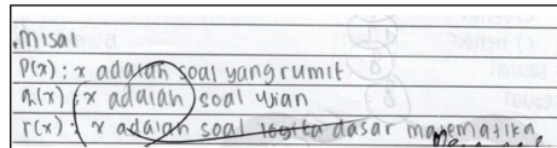 .misal
P(x) : x adalah soal yang rumit
q(x) : x adalah soal ujian
r(x) : x adalah soal logika dasar matematika